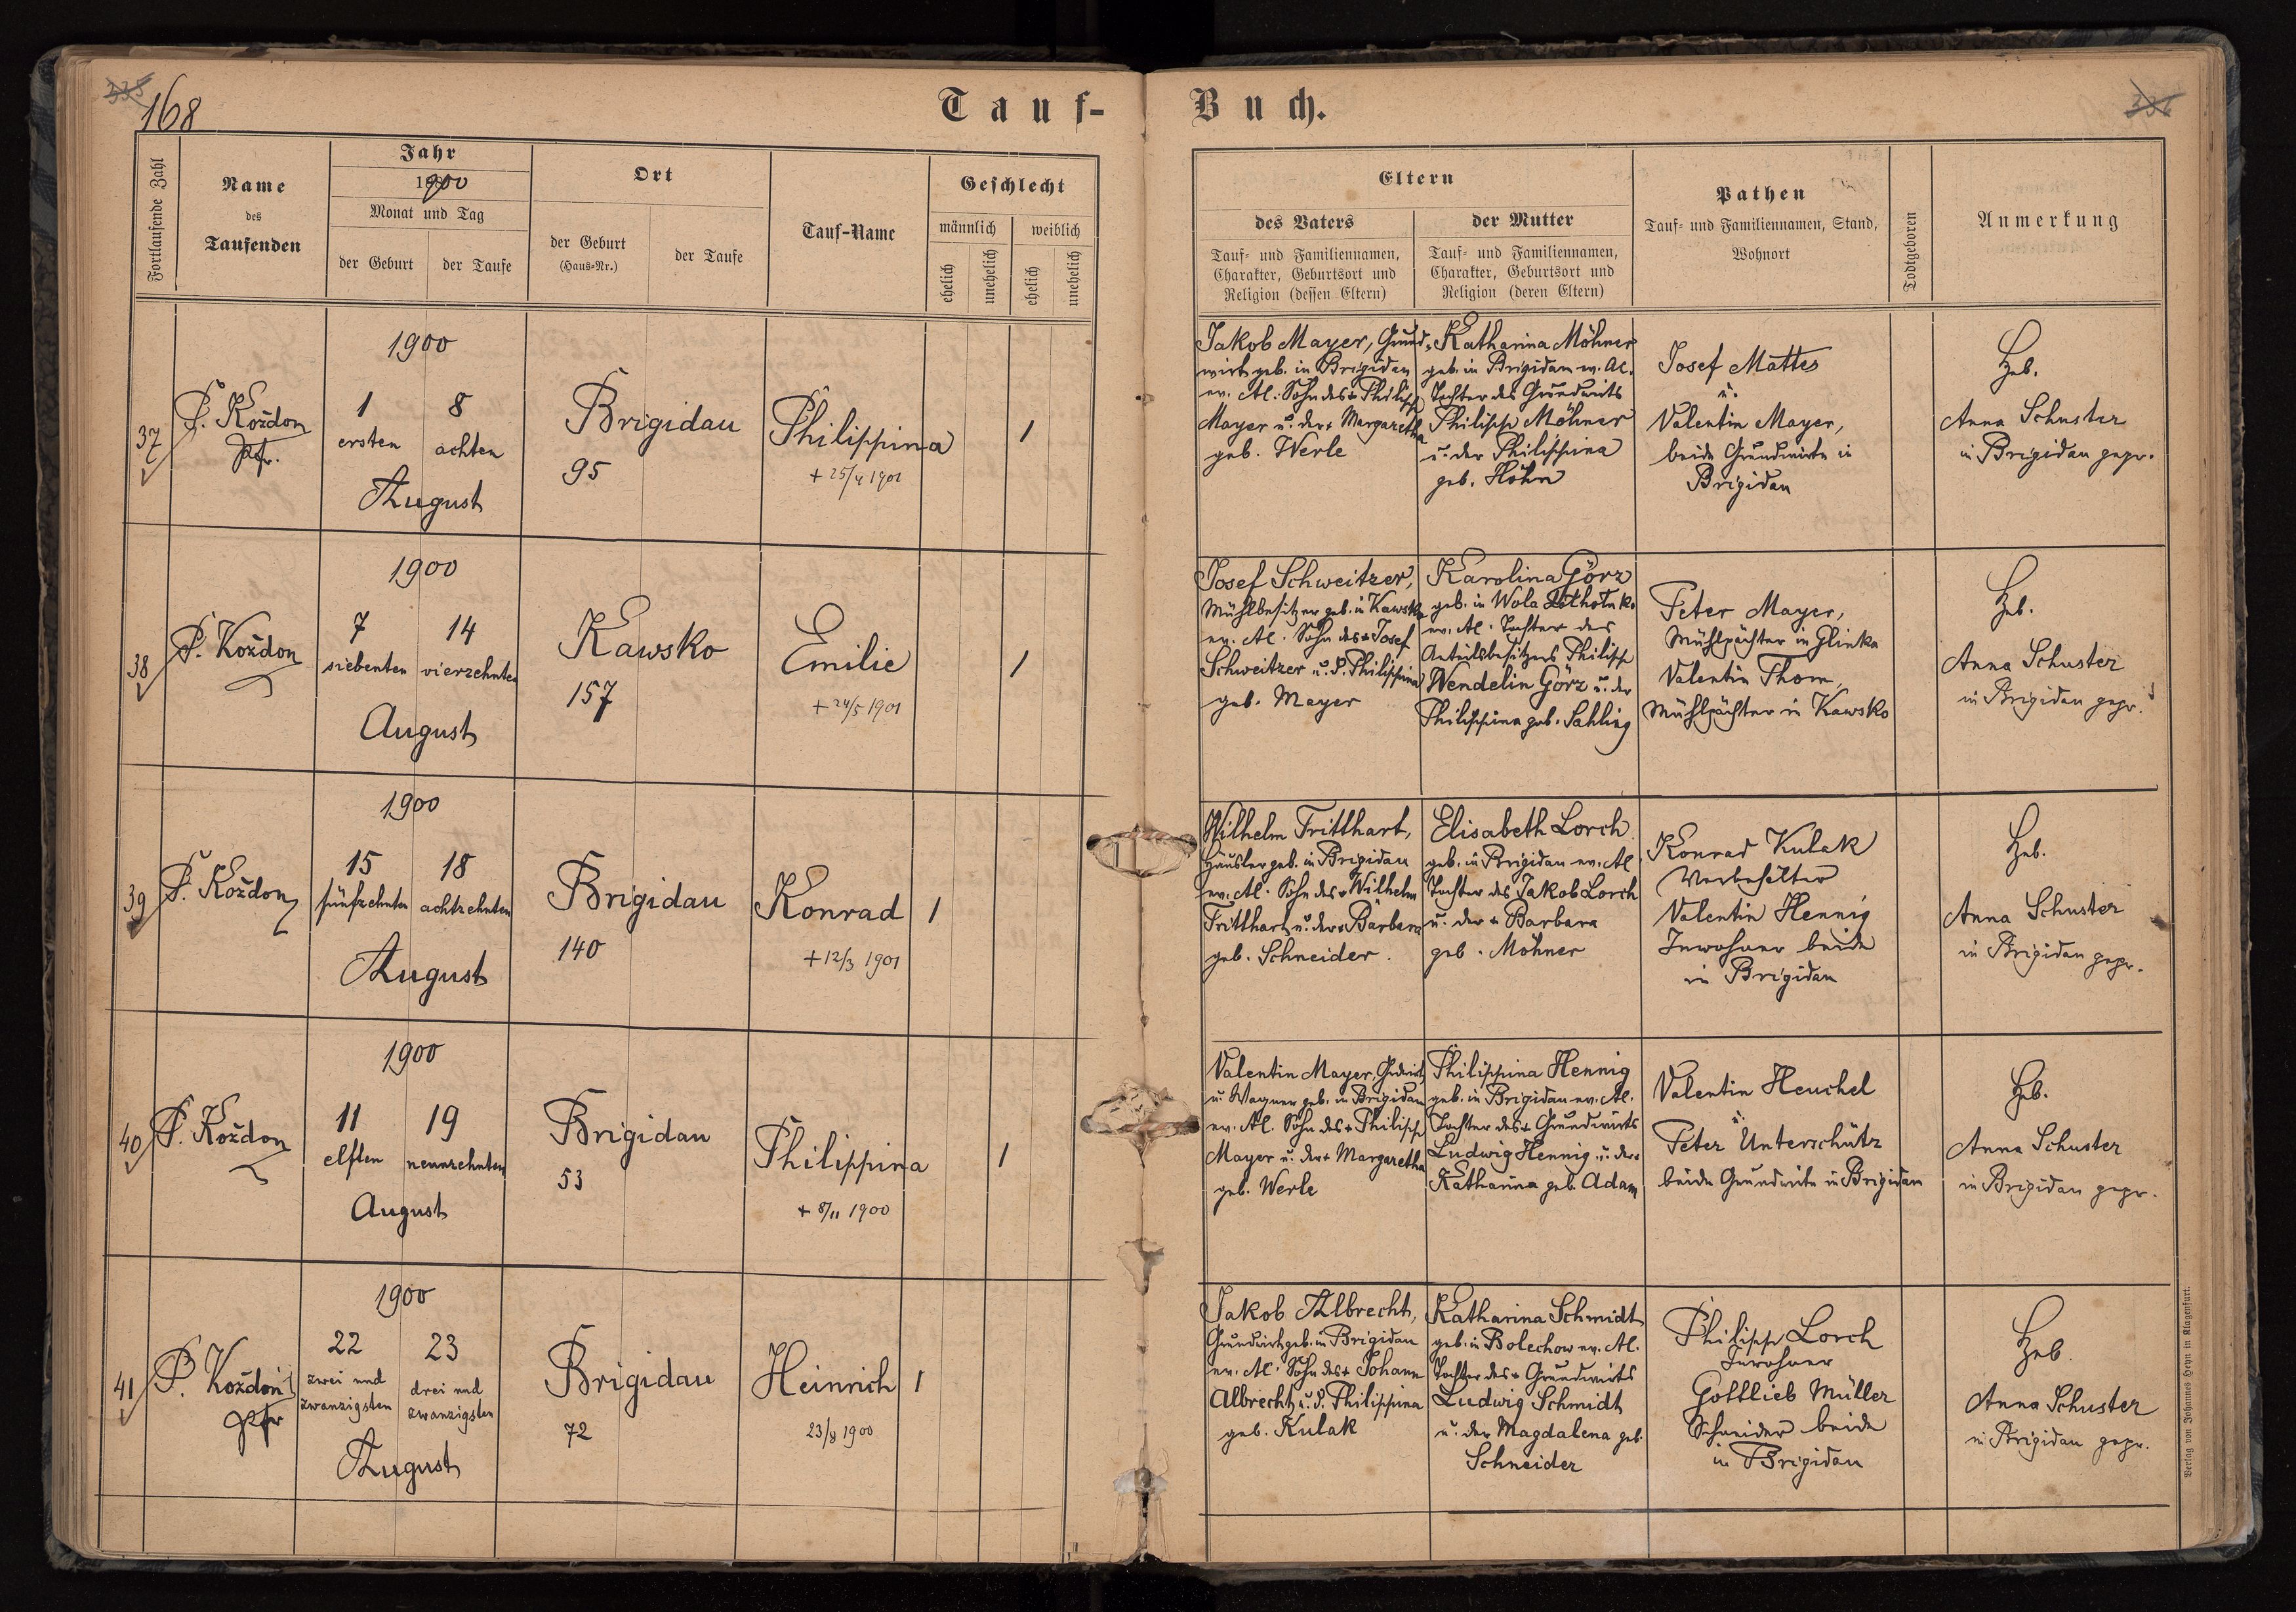 168
Tauf-
Buch.
Fortlaufende Zahl
Name
des
Taufenden
Jahr
1900
Monat und Tag
der Geburt
der Taufe
Ort
der Geburt
(Haus-Nr.)
der Taufe
Tauf-Name
Geschlecht
männlich
weiblich
ehelich
unehelich
ehelich
unehelich
Eltern
des Vaters
Tauf- und Familiennamen,
Charakter, Geburtsort und
Religion (dessen Eltern)
der Mutter
Tauf- und Familiennamen,
Charakter, Geburtsort und
Religion (deren Eltern)
Pathen
Tauf- und Familiennamen, Stand,
Wohnort
Todtgeboren
Anmerkung
37
P. Koždon
Pfr.
1900
1
ersten
8
achten
August
Brigidau
95
Philippina
+ 25/4 1901
1
Jakob Mayer, Grund-
wirt geb. in Brigidau
ev. Al. Sohn des + Philipp
Mayer u. der + Margaretha
geb. Werle
Katharina Möhner
geb. in Brigidau ev. Al.
Tochter des Grundwirts
Philipp Möhner
u. der Philippina
geb. Höhn
Josef Mattes
u.
Valentin Mayer,
beide Grundwirte in
Brigidau
Heb.
Anna Schuster
in Brigidau gepr.
38
P. Koždon
1900
7
siebenten
14
vierzehnten
August
Kawsko
157
Emilie
+ 24/5 1901
1
Josef Schweitzer,
Mühlbesitzer geb. in Kawsko
ev. Al. Sohn des + Josef
Schweitzer u. d. Philippina
geb. Mayer
Karolina Görz
geb. in Wola
ev. Al. Tochter des
Anteilsbesitzers Philipp
Wendelin Görz u. der
Philippina geb. Sahling
Peter Mayer,
Mühlpächter in Glinka
Valentin Thom,
Mühlpächter in Kawsko
Heb.
Anna Schuster
in Brigidau gepr.
39
P. Koždon
1900
15
fünfzehnten
18
achtzehnten
August
Brigidau
140
Konrad
+ 12/3 1901
1
Wilhelm Tritthart,
Häusler geb. in Brigidau
ev. Al. Sohn des + Wilhelm
Tritthart u. der + Barbara
geb. Schneider.
Elisabeth Lorch
geb. in Brigidau ev. Al.
Tochter des Jakob Lorch
u. der + Barbara
geb. Möhner
Konrad Kulak
Vorbehälter
Valentin Hennig
Inwohner beide
in Brigidau
Heb.
Anna Schuster
in Brigidau gepr.
40
P. Koždon
1900
11
elften
19
neunzehnten
August
Brigidau
53
Philippina
+ 8/11 1900
1
Valentin Mayer, Grdwirt
u. Wagner geb. in Brigidau
ev. Al. Sohn des + Philipp
Mayer u. der + Margaretha
geb. Werle
Philippina Hennig
geb. in Brigidau ev. Al.
Tochter des + Grundwirts
Ludwig Hennig u. der
Katharina geb. Adam
Valentin Heuchel
u.
Peter Unterschütz
beide Grundwirte in Brigidau
Heb.
Anna Schuster
in Brigidau gepr.
41
P. Koždon
Pfr
1900
22
zwei und
zwanzigsten
23
drei und
zwanzigsten
August
Brigidau
72
Heinrich
23/8 1900
1
Jakob Albrecht,
Grundwirt geb. in Brigidau
ev. Al. Sohn des + Johann
Albrecht u. d. Philippina
geb. Kulak
Katharina Schmidt
geb. in Bolechow ev. Al.
Tochter des + Grundwirts
Ludwig Schmidt
u. der Magdalena geb.
Schneider
Philipp Lorch
Inwohner
Gottlieb Müller
Schneider beide
in Brigidau
Heb.
Anna Schuster
in Brigidau gepr.
Verlag von Johannes Heyn in Klagenfurt.